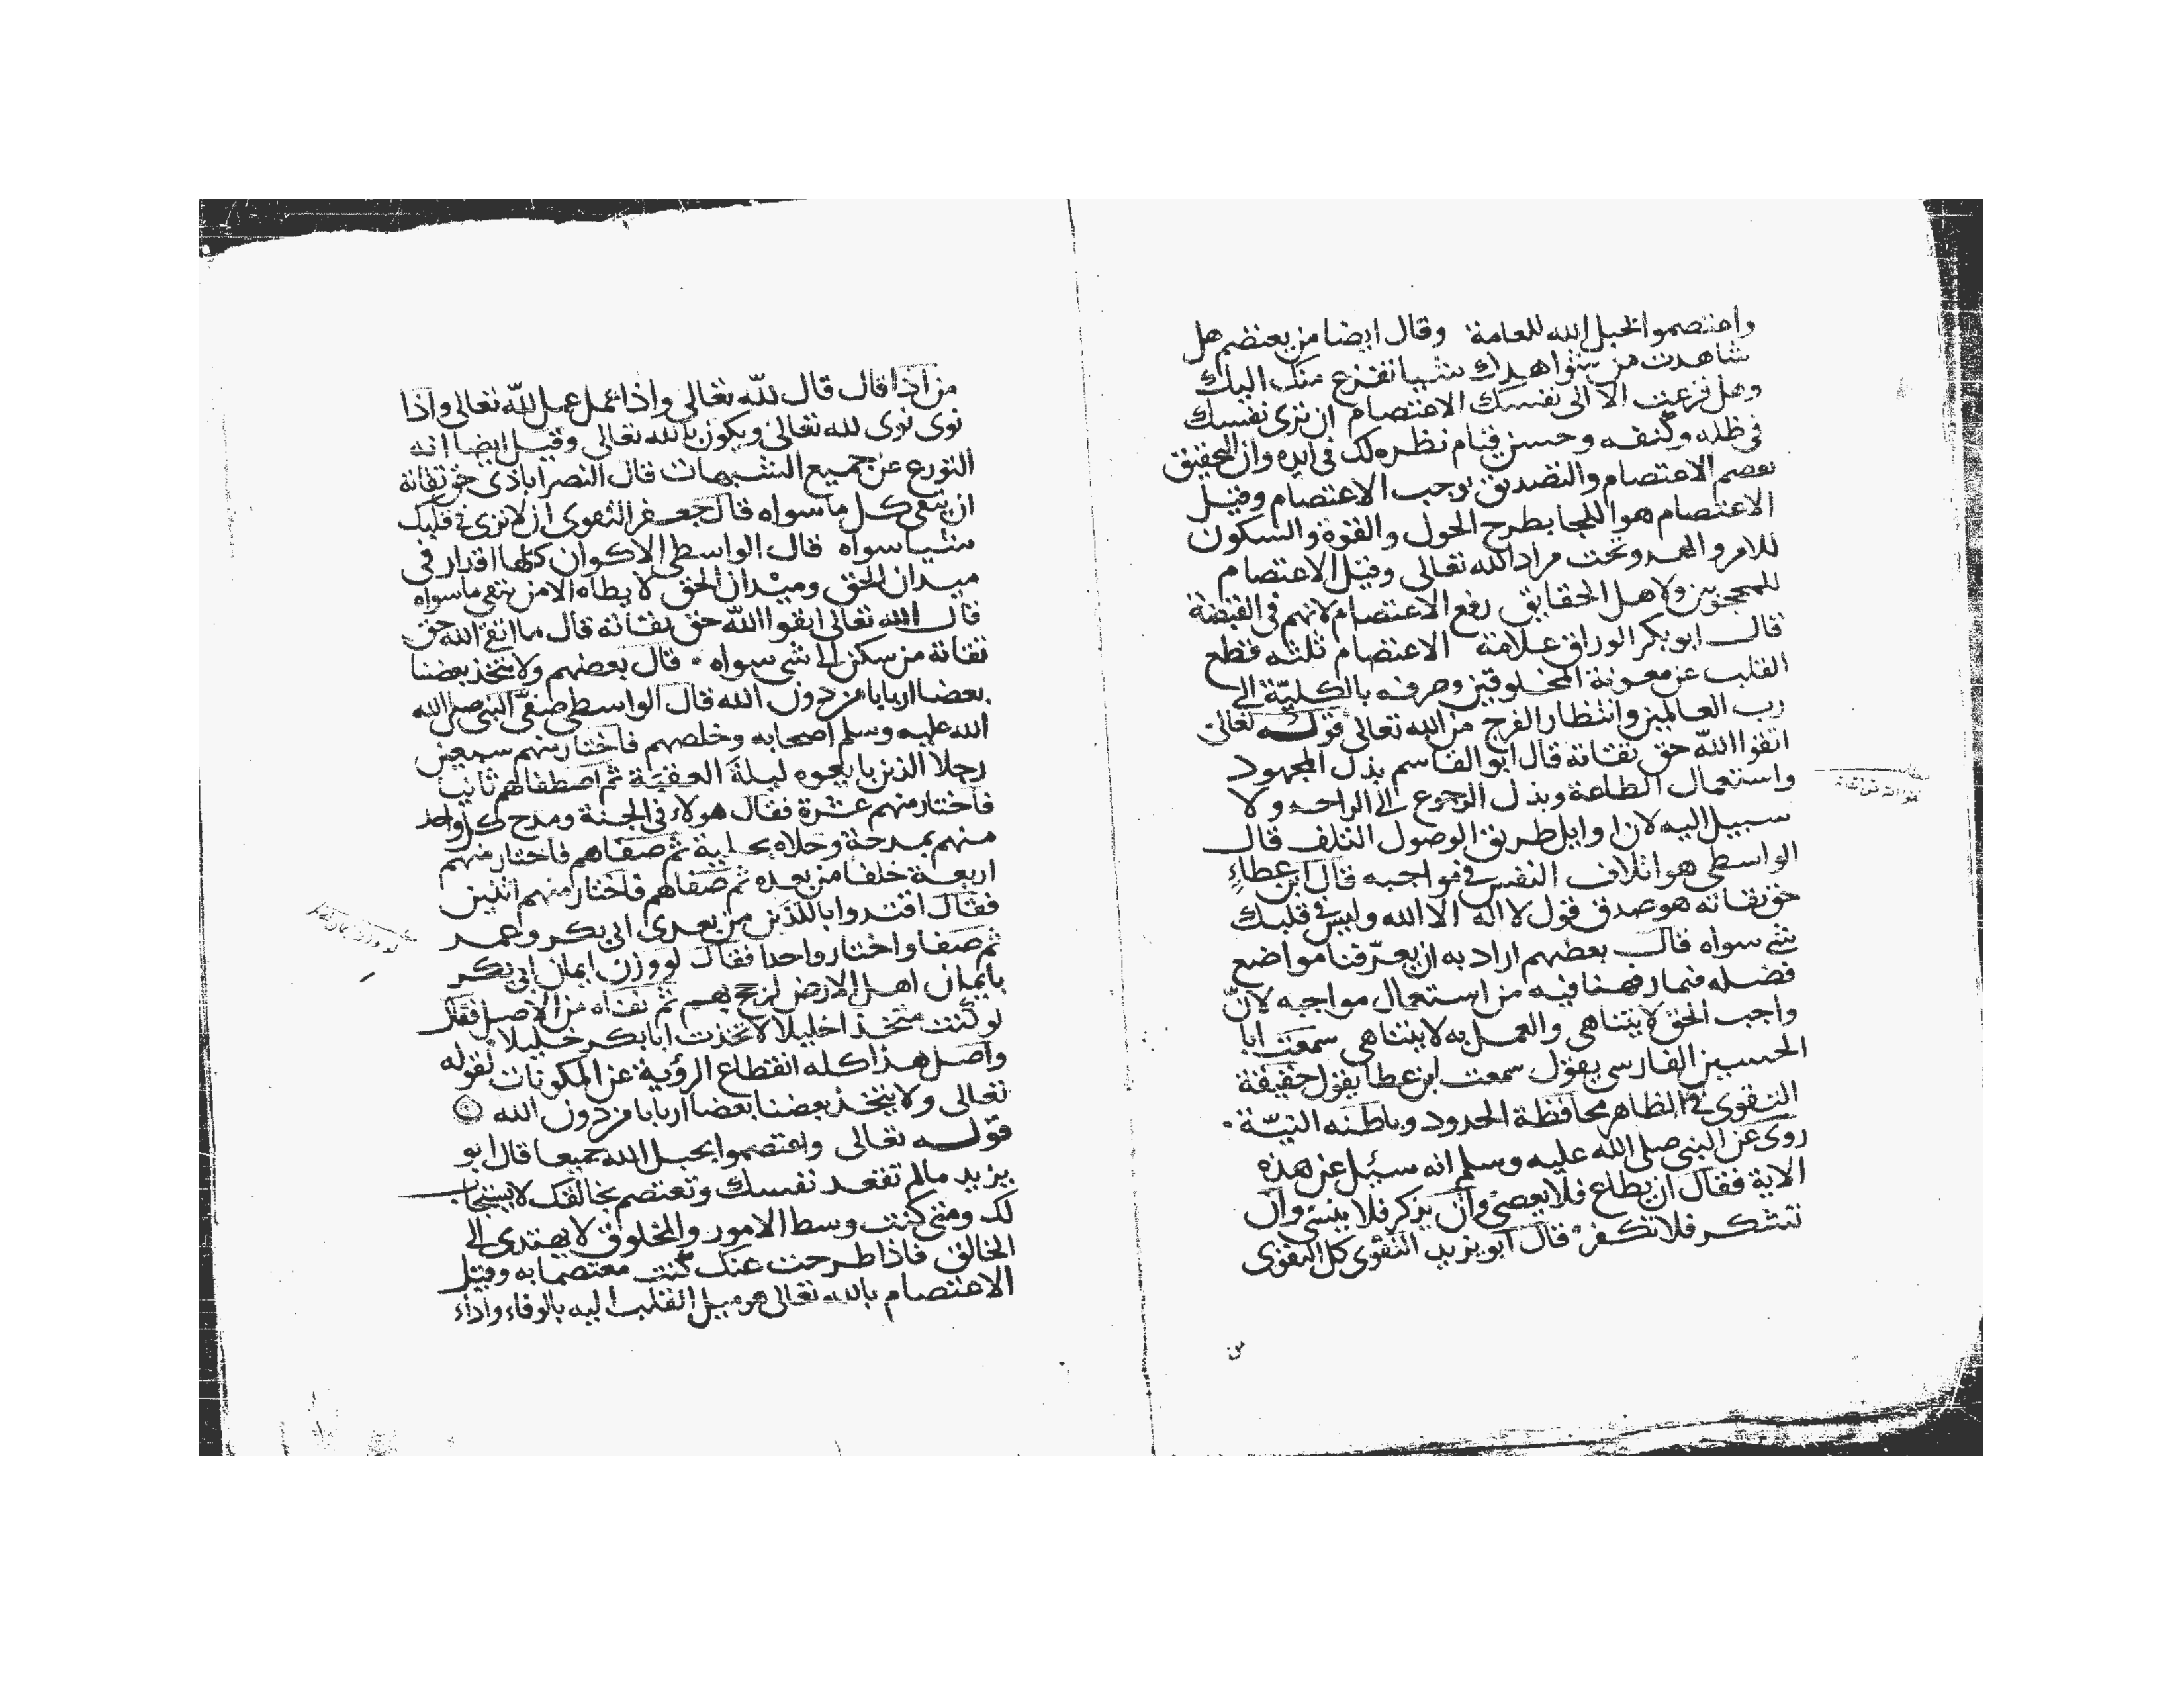 واعتصموا بحبل الله للعامة وقال ايضا من يعتصم هل
شاهدت من شواهدك شيا تفزع منك اليك
وهل فزعت الا الى نفسك الاعتصام ان ترى نفسك
فى ظله وكنفه وحسن قيام نظره لك فى ابده وان التحقيق
بعصم الاعتصام والتصديق يوجب الاعتصام وقيل
الاعتصام هو اللجا بطرح الحول والقوة والسكون
للامر والهدو تحت مراد الله تعالى وقيل الاعتصام
للمحجوبين ولاهل الحقايق رفع الاعتصام لانهم فى القبضة
قال ابو بكر الوراق علامة الاعتصام ثلثه قطع
القلب عن معونة المخلوقين وصرفه بالكليّة الى
رب العالمين وانتظار الفرج من الله تعالى قوله تعالى
اتقوا الله حق تقاته قال ابو القاسم بذل المجهود
واستعمال الطاعة وبذل الرجوع الى الراحه ولا
سبيل اليه لان اوايل طريق الوصول التلف قال
الواسطى هو اتلاف النفس فى مواجبه قال ابن عطاءٍ
حق تقاته هو صدق قول لا اله الا الله وليس فى قلبك
شى سواه قال بعضهم اراد به ان يعرّفنا مواضع
فضله فيما رفهنا فيه من استعمال مواجبه لانّ
واجب الحق لا يتناهى والعمل به لا يتناهى سمعت ابا
الحسين الفارسى يقول سمعت ابن عطا يقول حقيقة
التقوى فى الظاهر محافظة الحدود وباطنه النيّة
روى عن النبى صلى الله عليه وسلم انه سئل عن هذه
الاية فقال ان يطاع فلا يعصى وان يذكر فلا ينسى وان
تشكر فلا تكفر قال ابو يزيد التقوى كل التقوى
من اذا قال قال لله تعالى واذا عمل عمل لله تعالى واذا
نوى نوى لله تعالى ويكون بالله تعالى وقيل ايضا انه
التورع عن جميع الشبهات قال النصراباذى حق تقاته
ان يتقى كل ما سواه قال جعفر التقوى ان لا ترى فى قلبك
شيا سواه قال الواسطى الاكوان كلها اقدار فى
ميدان الحق وميدان الحق لا يطاه الا من يتقى ما سواه
قال الله تعالى اتقوا الله حق تقاته قال ما اتقى الله حق
تقاته من سكن الى شى سواه قال بعضهم ولا يتخذ بعضنا
بعضا اربابا من دون الله قال الواسطى صفّى النبى صلى الله
الله عليه وسلم اصحابه وخلصهم فاختار منهم سبعين
رجلا الذين بايعوه ليلة العقبة ثم اصطفاهم ثانيا
فاختار منهم عشرة فقال هولاء فى الجنة ومدح كل واحد
منهم بمدحة وحلاه بحلية ثم صفاهم فاختار منهم
اربعة خلفا من بعده ثم صفاهم فاختار منهم اثنين
فقال اقتدوا باللذين من بعدى ابى بكر وعمر
ثم صفا واختار واحدا فقال لو وزن ايمان ابى بكر
بايمان اهل الارض لرجح بهم ثم نفاه من الاصل فقال
لو كنت متخذا خليلا لاتخذت ابا بكر خليلا
واصل هذا كله انقطاع الرؤية عن المكونات لقوله
تعالى ولا يتخذ بعضنا بعضا اربابا من دون الله
قوله تعالى واعتصموا بحبل الله جميعا قال ابو
يزيد مالم تفقد نفسك وتعتصم بخالقك لا يستجاب
لك ومتى كنت وسط الامور والمخلوق لا يهتدى الى
الخالق فاذا طرحت عنك كنت معتصما به وقيل
الاعتصام بالله تعالى هو ميل القلب اليه بالوفاء واداء